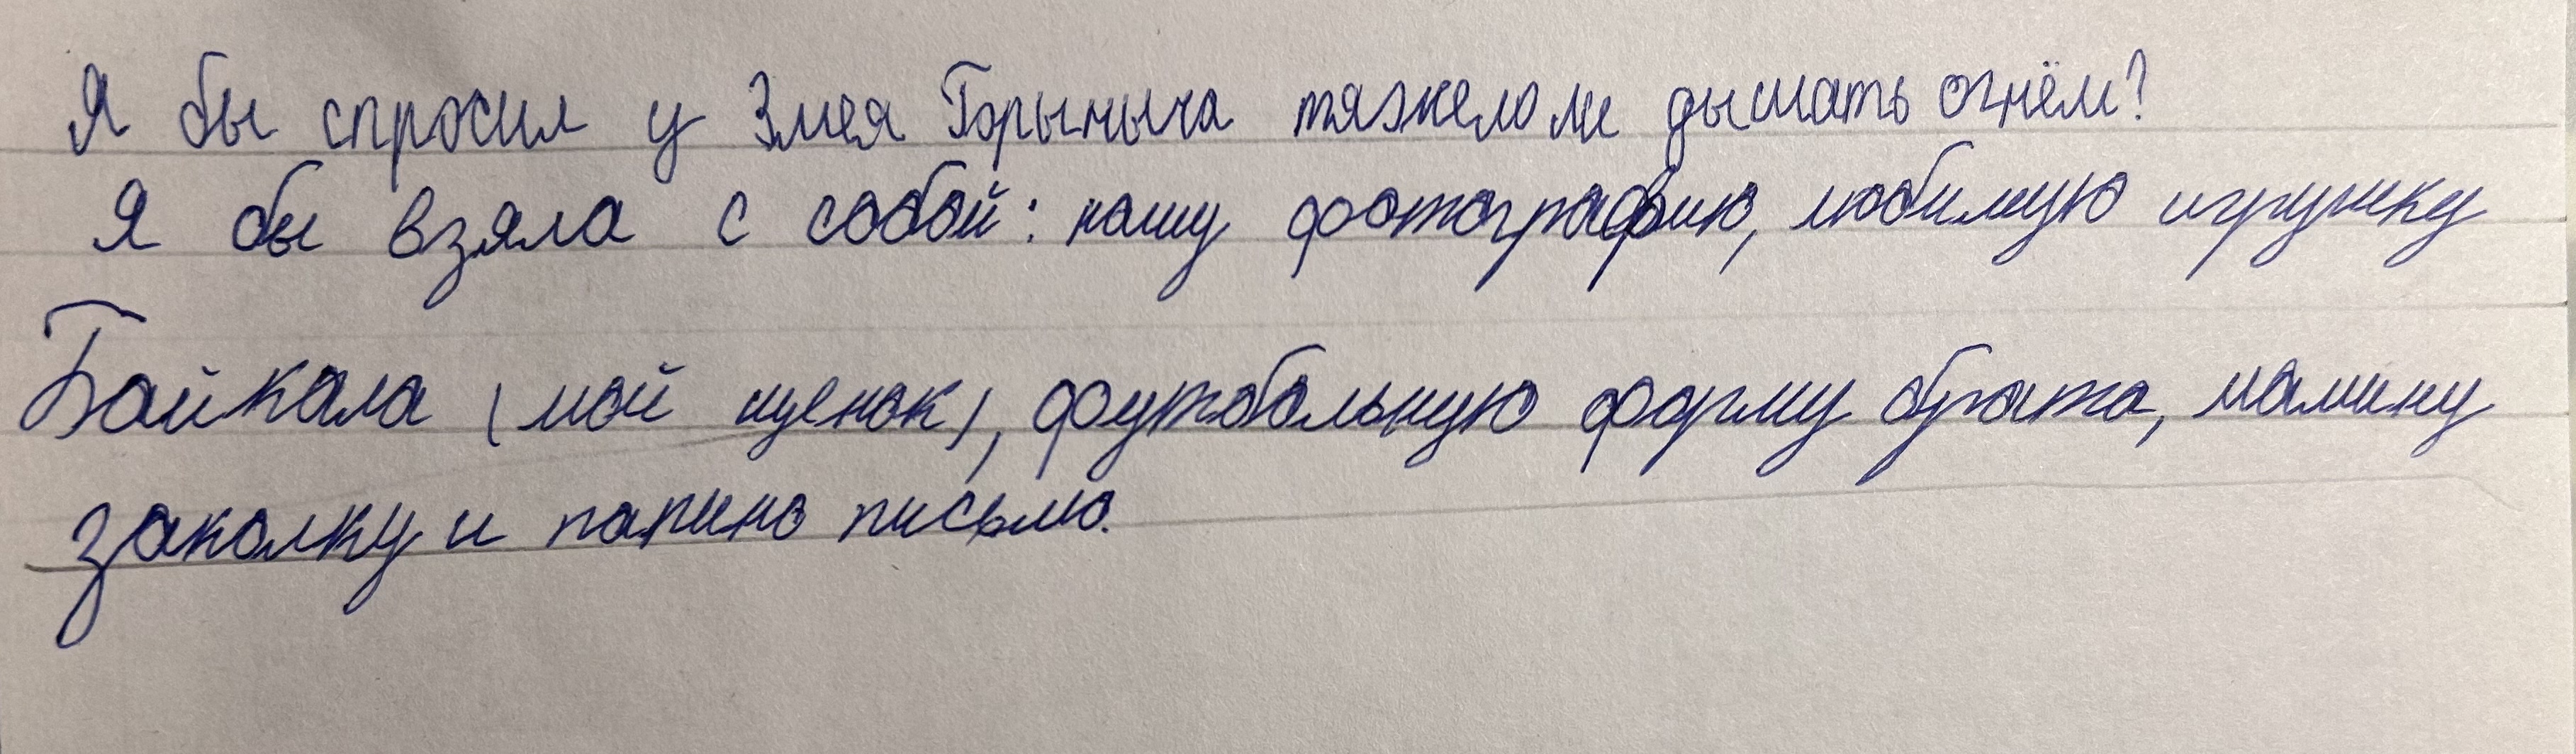 Я бы спросил у Змея Горыныча тяжело ли дышать огнём?
Я бы взяла с собой: нашу фотографию, любимую игрушку
Байкала (мой щенок), футбольную форму брата, мамину
заколку и папино письмо.